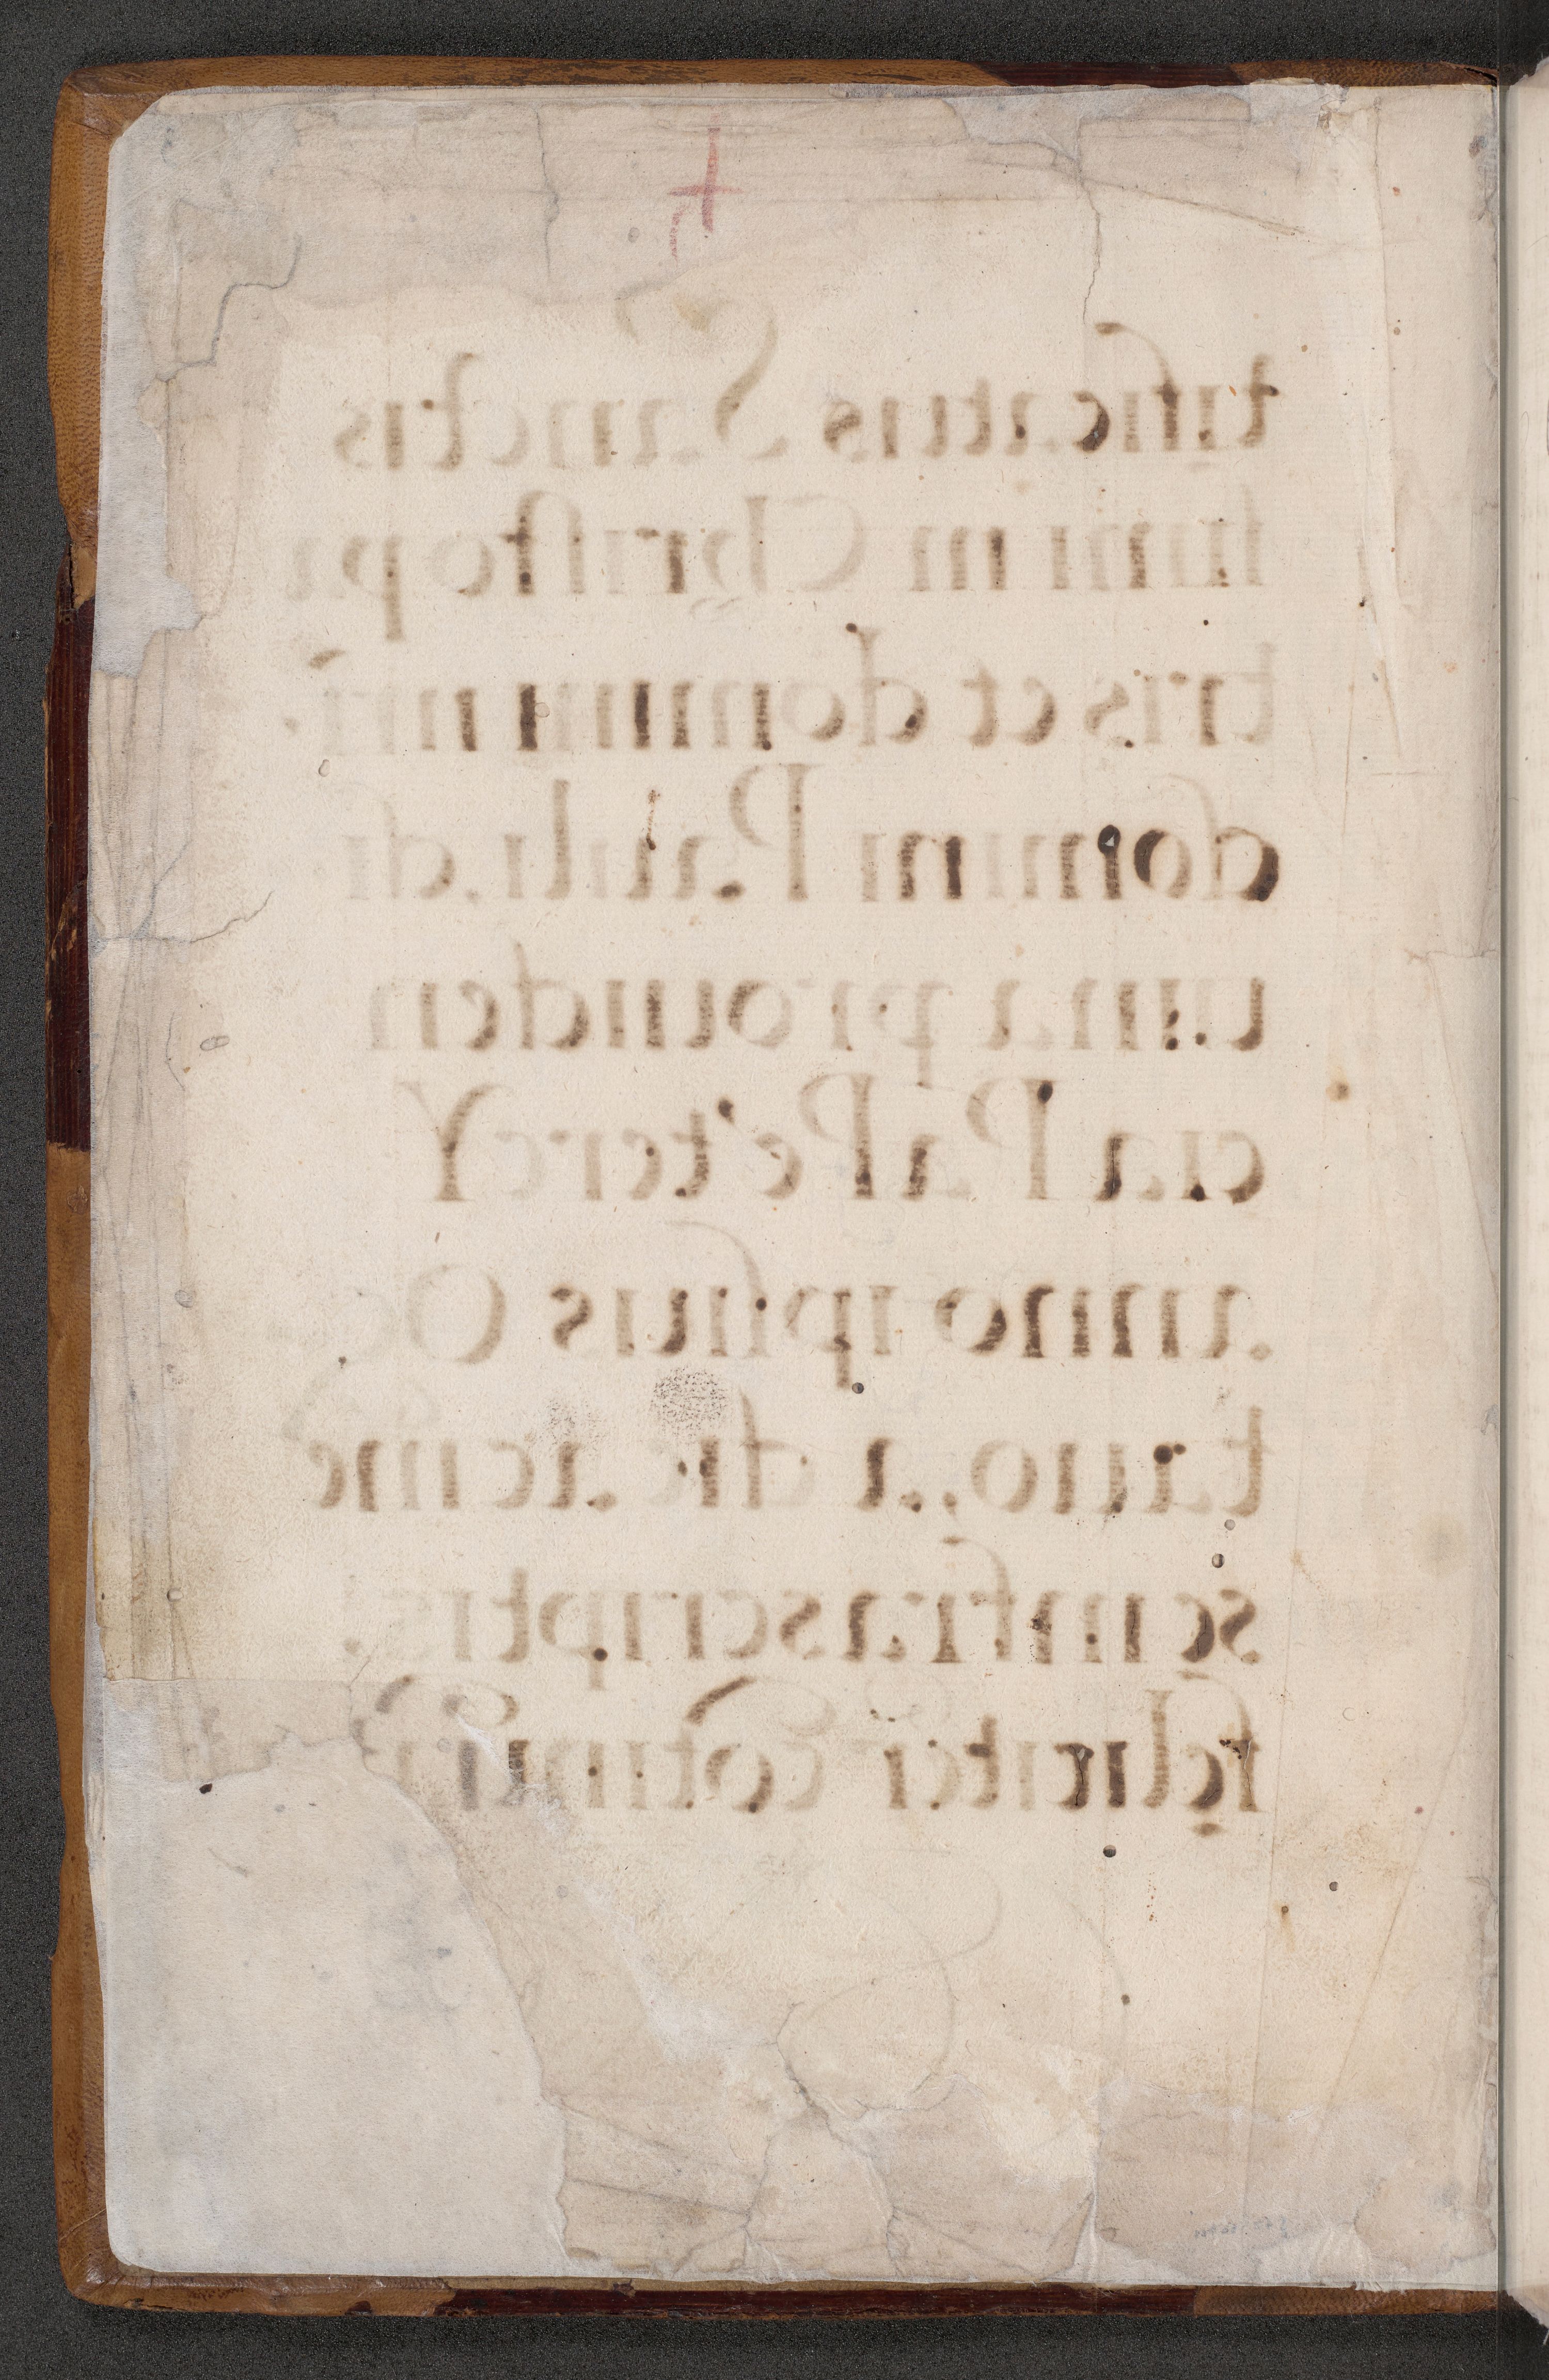 tificatus Sanctis
simi in Christo pa
tris et domini nrī.
domini Pauli di
uina prouiden
cia PaPe tercY
anno ipsius O
tauo, a die ac mē
se infrascriptis
feliciter